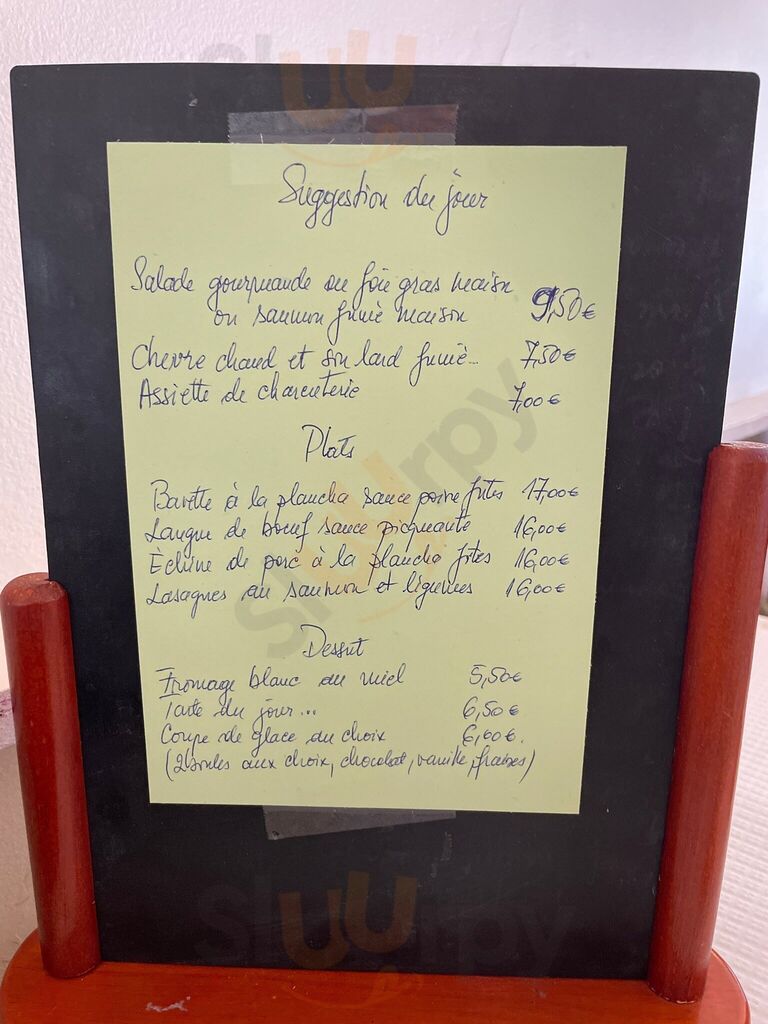 Suggestion du jour
Salade gourmande au foie gras maison
ou saumon fumé maison 9,50€
Chevre chaud et son lard fumé... 7,50€
Assiette de charcuterie 7,00€
Plats
Bavette à la plancha sauce poivre frites 17,00€
Langue de boeuf sauce picquante 16,00€
Échine de porc à la plancha frites 16,00€
Lasagnes au saumon et légumes 16,00€
Dessert
Fromage blanc au miel 5,50€
Tarte du jour... 6,50€
Coupe de glace au choix 6,60€.
(2 boules aux choix, chocolat, vanille, fraises)
Sluurpy